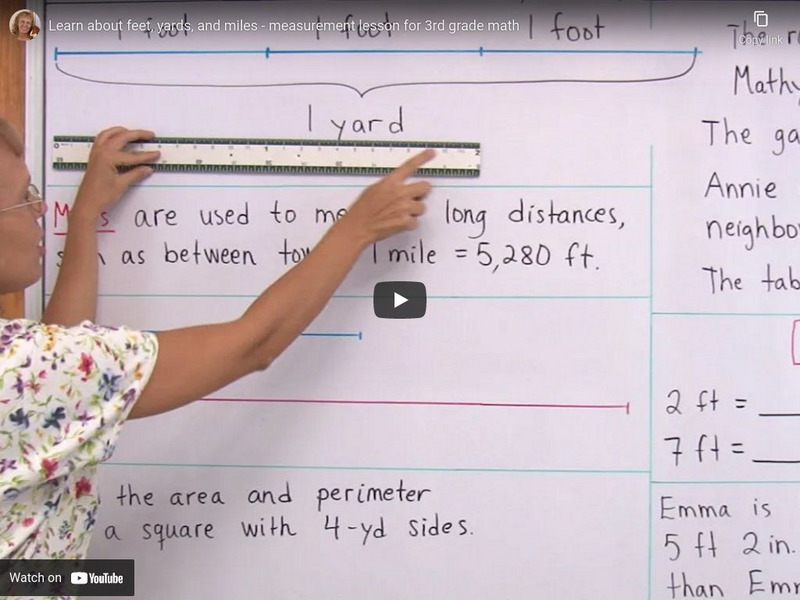 Learn about feet, yards, and miles - measurement lesson for 3rd grade math
Copy link
1 foot 1 foot 1 foot
1 yard
are used to long distances,
as between 1 mile = 5,280 ft.
the area and perimeter
a square with 4-yd sides.
The
Mathy
The ga
Annie
neighbo
The tab
2 ft = ___
7 ft = ___
Emma is
5 ft 2 in.
than Emm
Watch on YouTube